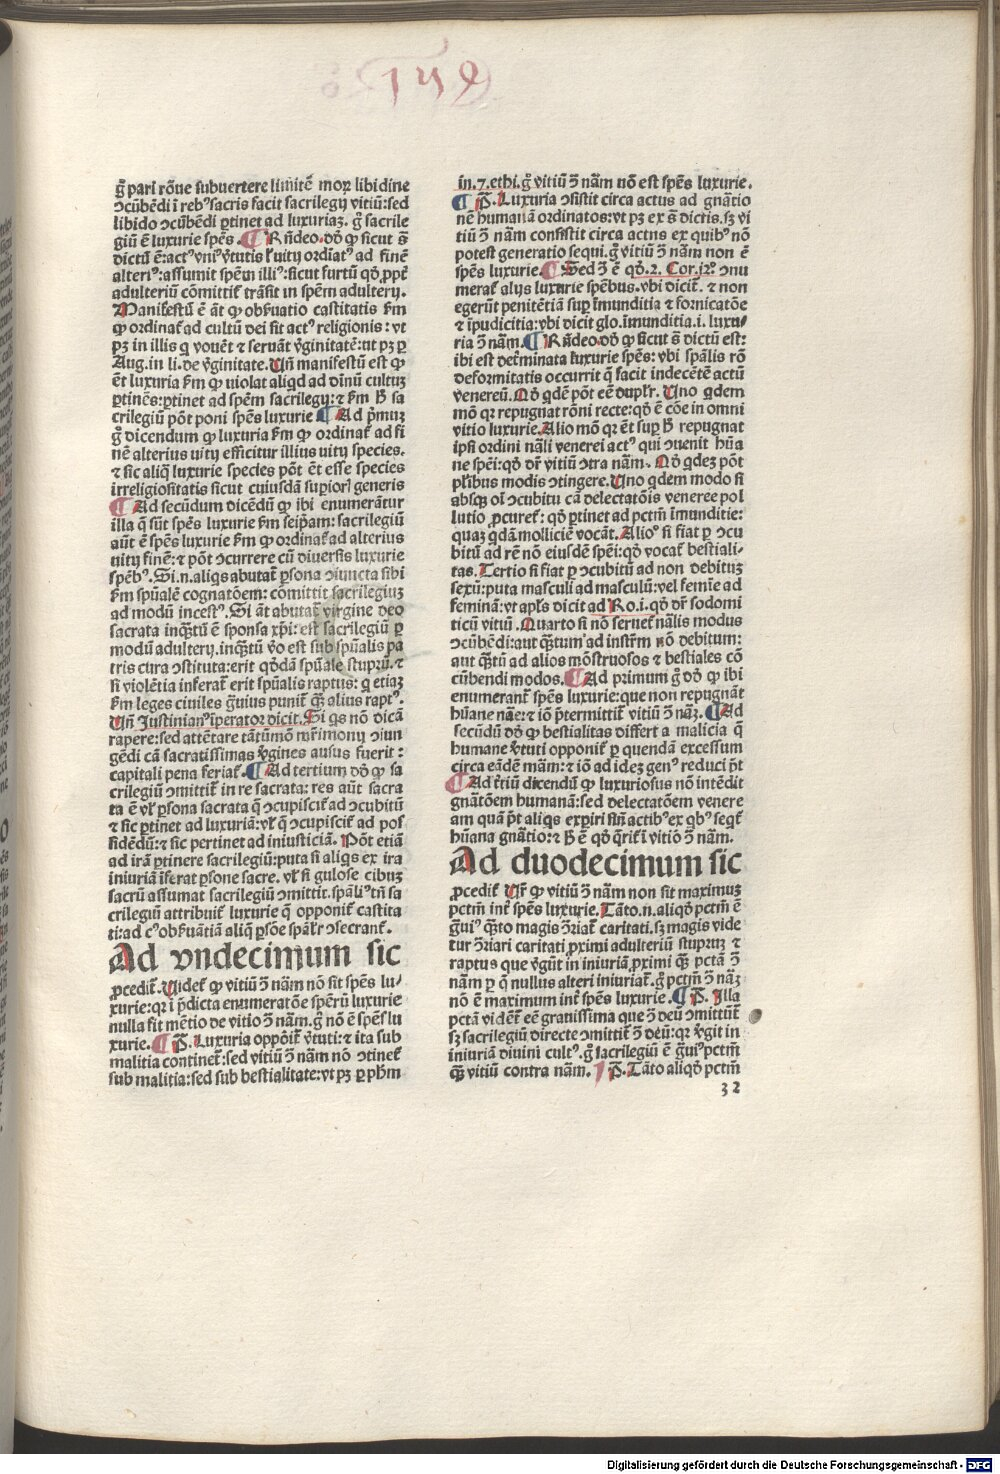 154
g̊ pari rōne subuertere limitē moꝝ libidine
ɔcūbēdi ī rebꝰ sacris facit sacrilegij vitiū: sed
libido ɔcūbēdi ꝑtinet ad luxuriaꝫ. g̊ sacrile
giū ē luxurie spēs. ¶ Rn̄deo. dō ꝙ sicut s̄
dictū ē: actꝰ vniꝰ v̄tutis ł uitij ordīatꝰ ad finē
alteriꝰ: assumit spēm illiꝰ: sicut furtū qḋ ꝓpt̄
adulteriū cōmittit̄ trāsit in spēm adulterij.
Manifestū ē āt ꝙ obẜuatio castitatis ẜm
ꝙ ordinat̄ ad cultū dei fit actꝰ religionis: vt
pꝫ in illis q̄ vouēt ⁊ seruāt v̄ginitatē: ut pꝫ ꝑ
Aug. in li. de v̄ginitate. Un̄ manifestū est ꝙ
ēt luxuria ẜm ꝙ uiolat aliqd ad dīnū cultuꝫ
ꝑtinēs: ꝑtinet ad spēm sacrilegij: ⁊ ẜm ꝧ sa
crilegiū pōt poni spēs luxurie ¶ Ad pͥmuꝫ
g̊ dicendum ꝙ luxuria ẜm ꝙ ordinat̄ ad fi
nē alterius uitij efficitur illius uitij species.
⁊ sic aliq̄ luxurie species pōt ēt esse species
irreligiositatis sicut cuiusdā supioꝝ generis
¶ Ad secūdum dicēdū ꝙ ibi enumerātur
illa q̄ sūt spēs luxurie ẜm seip̄am: sacrilegiū
aūt ē spēs luxurie ẜm ꝙ ordinat̄ ad alterius
uitij finē: ⁊ pōt ɔcurrere cū diuersis luxurie
spēbꝰ. Si .n. aliqs abutat̄ ꝑsona ɔiuncta sibi
ẜm spūalē cognatōem: cōmittit sacrilegiuꝫ
ad modū incestꝰ. Si āt abutat̄ virgine deo
sacrata inqꝫtū ē sponsa xp̄i: est sacrilegiū ꝑ
modū adulterij. inqꝫtū v̊o est sub spūalis pa
tris cura ɔstituta: erit qḋdā spūale stuprū. ⁊
si violētia inferat̄ erit spūalis raptus: q̄ etiaꝫ
ẜm leges ciuiles g̊uius punit̄ qꝫ alius raptꝰ.
Un̄ Justinianꝰ īperator dicit. Si qs nō dicā
rapere: sed attētare tātūmō mr̄imonij ɔiun
gēdi cā sacratissimas v̄gines ausus fuerit:
capitali pena feriat̄. ¶ Ad tertium dō ꝙ sa
crilegiū ɔmittit̄ in re sacrata: res aūt sacra
ta ē vł ꝑsona sacrata q̄ ɔcupiscit̄ ad ɔcubitū
⁊ sic ꝑtinet ad luxuriā: vł q̄ ɔcupiscit̄ ad pos
sidēdū: ⁊ sic pertinet ad iniusticiā. Pōt etiā
ad irā ꝑtinere sacrilegiū: puta si aliqs ex ira
iniuriā īferat ꝑsone sacre. vł si gulose cibuꝫ
sacrū assumat sacrilegiū ɔmittit. spāliꝰ tn̄ sa
crilegiū attribuit̄ luxurie q̄ opponit̄ castita
ti: ad cꝰ obẜuātiā aliq̄ ꝑsōe spālr̄ ɔsecrant̄.
Ad vndecimum sic
ꝓcedit̄. Uidet̄ ꝙ vitiū ɔ̄ nām nō sit spēs lu⸗
xurie: qꝛ ī p̄dicta enumeratōe spērū luxurie
nulla fit mētio de vitio ɔ̄ nām. g̊ nō ē spēs lu
xurie. ¶ P̄. Luxuria oppōit̄ v̄tuti: ⁊ ita sub
malitia continet̄: sed vitiū ɔ̄ nām nō ɔtinet̄
sub malitia: sed sub bestialitate: vt pꝫ ꝑ pħm
in .7. ethi. g̊ vitiū ɔ̄ nām nō est spēs luxurie.
¶ P̄. Luxuria ɔsistit circa actus ad gnātio
nē humanā ordinatos: vt pꝫ ex s̄ dictis. sꝫ vi
tiū ɔ̄ nām consistit circa actus ex quibꝰ nō
potest generatio sequi. g̊ vitiū ɔ̄ nām non ē
spēs luxurie. ¶ Sed ɔ̄ ē qḋ .2. Cor. 12. ɔnu
merat̄ alijs luxurie spēbus. vbi dicit̄. ⁊ non
egerūt penitētiā suꝑ īmunditia ⁊ fornicatōe
⁊ īpudicitia: vbi dicit glo. īmunditia .i. luxu⸗
ria ɔ̄ nām. ¶ Rn̄deo. dō ꝙ sicut s̄ dictū est:
ibi est det̄minata luxurie spēs: vbi spālis rō
deformitatis occurrit q̄ facit indecētē actū
venereū. Qḋ qdē pōt eē duplr̄. Uno qdem
mō qꝛ repugnat rōni recte: qḋ ē cōe in omni
vitio luxurie. Alio mō qꝛ ēt suꝑ ꝧ repugnat
ipsi ordini nāli venerei actꝰ qui ɔuenit hūa
ne spēi: qḋ dr̄ vitiū ɔtra nām. Qḋ qdeꝫ pōt
plibus modis ɔtingere. Uno qdem modo si
absqꝫ oī ɔcubitu cā delectatōis veneree pol
lutio ꝓcuret̄: qḋ ꝑtinet ad pctm̄ īmunditie:
quaꝫ qdā molliciē vocāt. Alioꝰ si fiat ꝑ ɔcu
bitū ad rē nō eiusdē spēi: qḋ vocat̄ bestiali⸗
tas. Tertio si fiat ꝑ ɔcubitū ad non debituꝫ
sexū: puta masculi ad masculū: vel femīe ad
feminā: vt apls̄ dicit ad Ro. i. qḋ dr̄ sodomi
ticū vitiū. Quarto si nō seruet̄ nālis modus
ɔcūbēdi: aut qꝫtum ad instrm̄ nō debitum:
aut qꝫtū ad alios mōstruosos ⁊ bestiales cō
cūbendi modos. ¶ Ad primum g̊ dō ꝙ ibi
enumerant̄ spēs luxurie: que non repugnāt
hūane nāe: ⁊ iō p̄termittit̄ vitiū ɔ̄ nāꝫ. ¶ Ad
secūdū dō ꝙ bestialitas differt a malicia q̄
humane v̄tuti opponit̄ ꝑ quendā excessum
circa eādē mām: ⁊ iō ad ideꝫ genꝰ reduci pōt
¶ Ad t̄tiū dicendū ꝙ luxuriosus nō intēdit
gnātōem humanā: sed delectatōem venere
am quā pōt aliqs expiri sin̄ actibꝰ ex qbꝰ seqt̄
hūana gnātio: ⁊ ꝧ ē qḋ qrit̄ ī vitio ɔ̄ nām.
Ad duodecimum sic
ꝓcedit̄. Ur̄ ꝙ vitiū ɔ̄ nām non sit maximuꝫ
pctm̄ int̄ spēs luxurie. Tāto .n. aliqḋ pctm̄ ē
g̊uiꝰ qꝫto magis ɔ̄riat̄ caritati. sꝫ magis vide
tur ɔ̄riari caritati ꝓximi adulteriū stupruꝫ ⁊
raptus que v̄gūt in iniuriā ꝓximi qꝫ pctā ɔ̄
nām ꝑ q̄ nullus alteri iniuriat̄. g̊ pctm̄ ɔ̄ nāꝫ
nō ē maximum int̄ spēs luxurie. ¶ P̄. Illa
pctā vidēt̄ eē grauissima que ɔ̄ deū ɔmittūt̄
sꝫ sacrilegiū directe ɔmittit̄ ɔ̄ deū: qꝛ v̄git in
iniuriā diuini cultꝰ. g̊ sacrilegiū ē g̊uiꝰ pctm̄
qꝫ vitiū contra nām. ¶ P̄. Tāto aliqḋ pctm̄
32
Digitalisierung gefördert durch die Deutsche Forschungsgemeinschaft - DFG